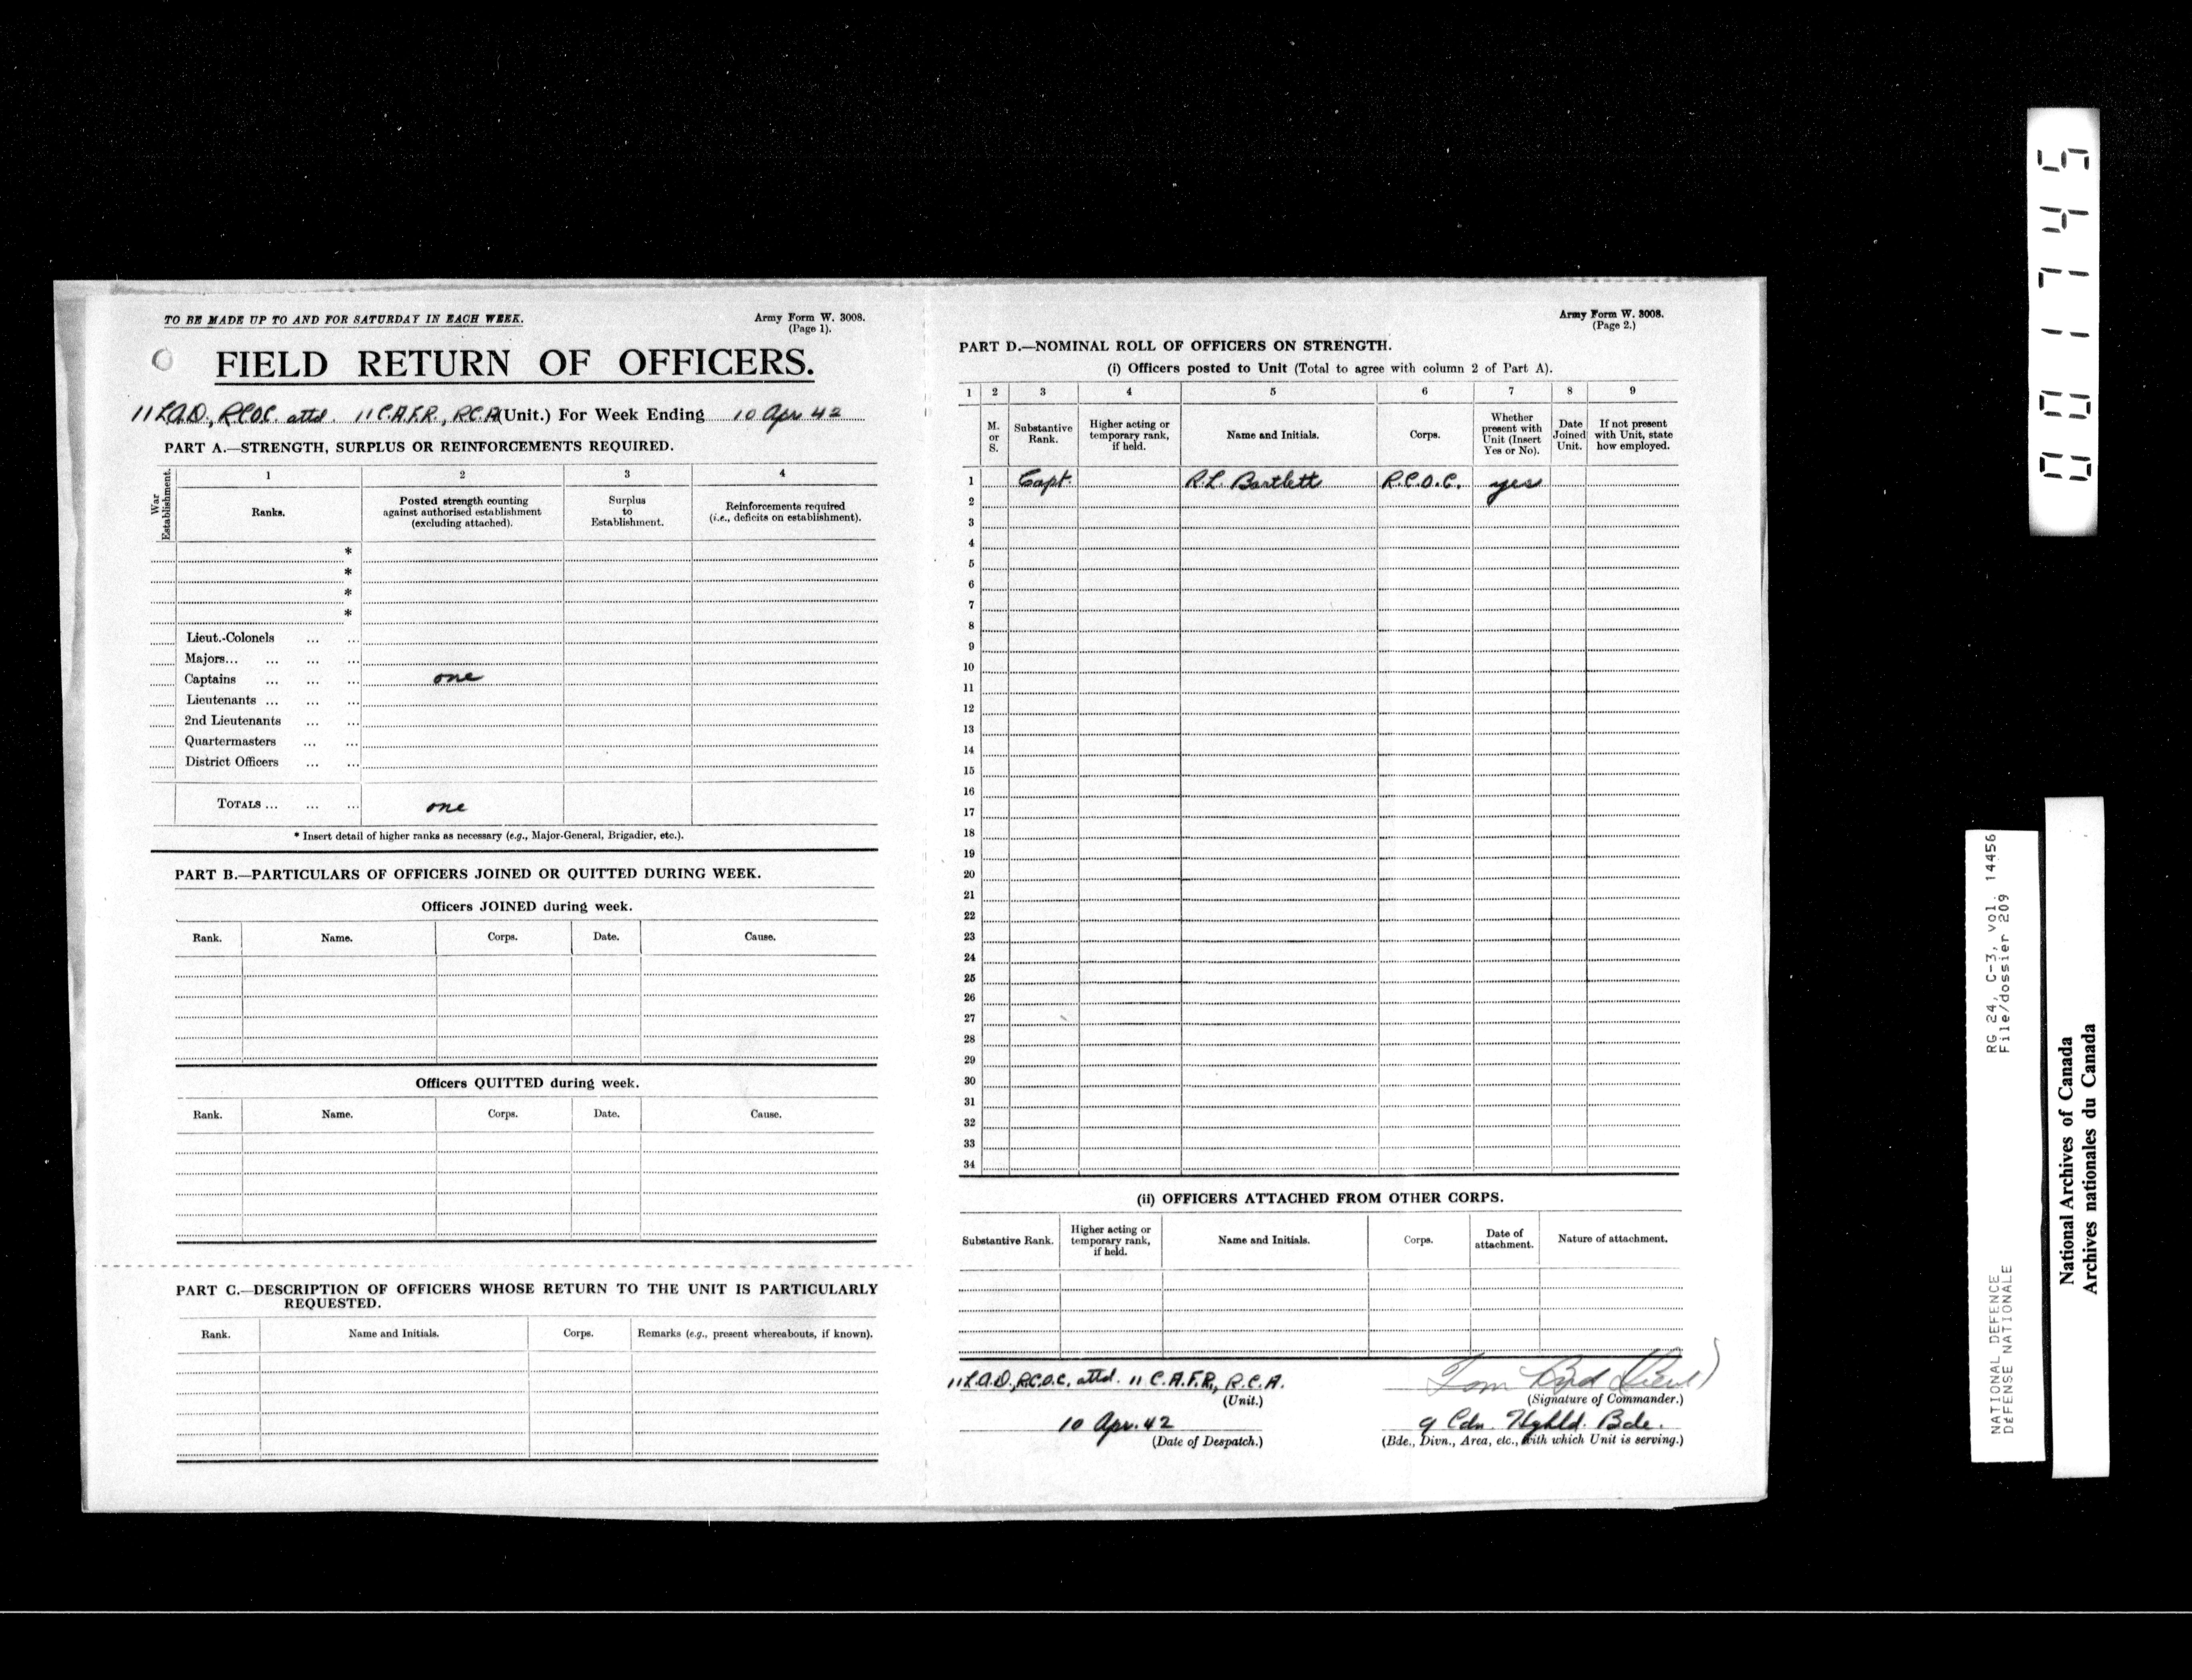 TO BE MADE UP TO AND FOR SATURDAY IN EACH WEEK.
Army Form W. 3008.
(Page 1).
FIELD RETURN OF OFFICERS.
11 L.A.D., R.C.O.C. attd. 11 C.A.F.R., R.C.A. (Unit.) For Week Ending 10 Apr 42
PART A.—STRENGTH, SURPLUS OR REINFORCEMENTS REQUIRED.
War Establishment.
1 2 3 4
Ranks.
Posted strength counting against authorised establishment (excluding attached).
Surplus to Establishment.
Reinforcements required (i.e., deficits on establishment).
*
*
*
*
Lieut.-Colonels ... ...
Majors... ... ... ...
Captains ... ... ... one
Lieutenants ... ... ...
2nd Lieutenants ... ...
Quartermasters ... ...
District Officers ... ...
TOTALS ... ... ... one
* Insert detail of higher ranks as necessary (e.g., Major-General, Brigadier, etc.).
PART B.—PARTICULARS OF OFFICERS JOINED OR QUITTED DURING WEEK.
Officers JOINED during week.
Rank. Name. Corps. Date. Cause.
Officers QUITTED during week.
Rank. Name. Corps. Date. Cause.
PART C.—DESCRIPTION OF OFFICERS WHOSE RETURN TO THE UNIT IS PARTICULARLY
REQUESTED.
Rank. Name and Initials. Corps. Remarks (e.g., present whereabouts, if known).
Army Form W. 3008.
(Page 2.)
PART D.—NOMINAL ROLL OF OFFICERS ON STRENGTH.
(i) Officers posted to Unit (Total to agree with column 2 of Part A).
1 2 3 4 5 6 7 8 9
M. or S.
Substantive Rank.
Higher acting or temporary rank, if held.
Name and Initials.
Corps.
Whether present with Unit (Insert Yes or No).
Date Joined Unit.
If not present with Unit, state how employed.
1 Capt. R.L. Bartlett R.C.O.C. yes
2
3
4
5
6
7
8
9
10
11
12
13
14
15
16
17
18
19
20
21
22
23
24
25
26
27
28
29
30
31
32
33
34
(ii) OFFICERS ATTACHED FROM OTHER CORPS.
Substantive Rank.
Higher acting or temporary rank, if held.
Name and Initials.
Corps.
Date of attachment.
Nature of attachment.
11 L.A.D., R.C.O.C. attd. 11 C.A.F.R., R.C.A.
(Unit.)
Tom
(Signature of Commander.)
10 Apr. 42
(Date of Despatch.)
9 Cdn. Hghld. Bde.
(Bde., Divn., Area, etc., with which Unit is serving.)
001745
NATIONAL DEFENCE RG 24, C-3, vol. 14456
DÉFENSE NATIONALE File/dossier 209
National Archives of Canada
Archives nationales du Canada